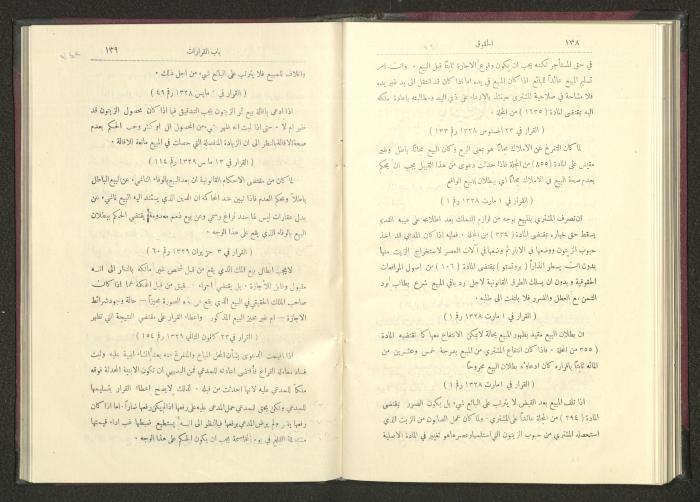 ١٣٨
الحقوق
في حق المستأجر لكنه يجب ان يكون وقوع الاجارة ثابتاً قبل البيع
تسليم المبيع عائداً للبائع اذا كان المبيع في يده اما اذا كان قد انتقل الى يد غير يده
فلا مشاحة في صلاحية المشتري حينئذ بالادعاء على ذي اليد ومطالبته باعادة ملكه
اليه بمقتضى المادة (١٦٣٥) من المجلة ٠
( القرار في ٢٣ اغستوس ١٣٢٨ رقم ١٣٣ )
لما كان التفرغ عن الاملاك مجاناً هو بمعنى الربع وكان البيع مجاناً باطل وغير
مقيس على المادة (٨٥٥) من المجلة فاذا حدثت دعوى من هذا القبيل يجب ان يحكم
بعدم صحة البيع في الاملاك مجاناً اي ببطلان البيع الواقع
( القرار في ١ مارت ١٣٢٨ رقم ١ )
ان تصرف المشتري بالمبيع بوجه من لوازم التملك بعد اطلاعه على عيبه القديم
يسقط حق خياره بمقتضى المادة (٣٣٤) من المجلة ٠ فعليه اذا كان المدعي قد اخذ
حبوب الزيتون ووضعها في الانابر ثم وضعها في آلات العصر لاستخراج الزيت منها
بدون ان يسطر انذاراً (بروتستو) بمقتضى المادة (١٠٦) من اصول المرافعات
الحقوقية و بدون ان يسلك الطرق القانونية لاجل رد باقي المبيع شرع يطالب برد
الثمن مع العطل والضرر فلا يلتفت الى طلبه ٠
( القرار في ١ مارت ١٣٢٨ رقم ١ )
ان بطلان البيع مقيد بظهور المبيع بحالة لا يمكن الانتفاع معها كما تقتضيه المادة
( ٣٥٥ من المجلة ٠ فاذا كان انتفاع المشتري من المبيع بدرجة خمس وعشرين من
المائه ثابتاً باقراره كان ادعاؤه بطلان البيع مجروحاً
( القرار في ١ مارت ١٣٢٨ رقم ١ )
اذا تلف المبيع بعد القبض لا يترتب على البائع شيء بل يكون الضرر بمقتضى
المادة ( ٢٩٤ ) من المجلة عائداً على المشتري ٠ ولما كان عمل الصابون من الزيت الذي
استحصله المشتري من حبوب الزيتون التي استلمها وعصرها هو تغيير في المادة الاصلية
باب القرارات
١٣٩
واتلاف للمبيع فلا يترتب على البائع شيء من اجل ذلك ٠
( القرار في ٠ مايس ١٣٢٨ رقم ٤٩ )
اذا ادعى باقالة بيع ثمر الزيتون يجب التدقيق فيما اذا كان محصول الزيتون قد
ظهر ام لا ٠ حتى اذا ثبت انه ظهر شيء من المحصول اقل او كثر وجب الحكم بعدم
صحة الاقالة بالنظر الى ان الزيادة المنفصلة التي حصلت في المبيع مانعة للاقالة ٠
( القرار في ١٣ مارس ١٣٢٩ رقم ١١٤ )
لما كان من مقتضى الاحكام القانونية ان يعد البيع بالوفاء الناشيء عن البيع الباطل
باطلاً وبحكم العدم فاذا تبين عند المحاكمة ان الدين الذي يستند اليه البيع ناشيء عن
بدل عقارات ليس لها سند فراغ رسمي وعن بيع ذمم معدومة يقتضي الحكم ببطلان
البيع بالوفاء الذي يقع على هذا الوجه ٠
( القرار في ٣ حزيران ١٣٢٩ رقم ٦٠ )
لا يجب ابطال بيع الملك الذي يقع من قبل شخص غير مالكه بالنظر الى انه
مقبول وقابل للاجازة ٠ بل يقتضي اجراء من قبل المحكمة عما اذا كان
صاحب الملك الحقيقي في البيع الذي يقع هذه الصورة مجيزاً — حالة وجود شرائط
الاجازة — ام غير مجيز البيع المذكور واعطاء القرار على مقتضى النتيجة التي تظهر
( القرار في ٢٣ كانون الثاني ١٣٢٩ رقم ١٥٤ )
اذا اقيمت الدعوى بشأن المحل المباع والمتفرغ عنه بعد انشاء ابنية عليه وثبت
فساد معاملة الفراغ فاقتضى اعادته للمدعي فمن البديهي ان تكون الابنية المحدثة فوقه
ملكاً للمدعى عليه لانها احدثت من قبله ٠ لذلك لا يصح اعطاء القرار بتسليمها
للمدعي ولكن يحق للمدعي حمل المدعى عليه على رفعها اذا لم يكن رفعها ضاراً ٠ اما اذا كان
رفعها يضر ولم يرض المدعي برفعها فبالنظر الى انه يستطيع ضبطها غب اداء قيمتها
مستحقة القلع في يوم المخاصمة يجب ان يكون الحكم على هذا الوجه ٠